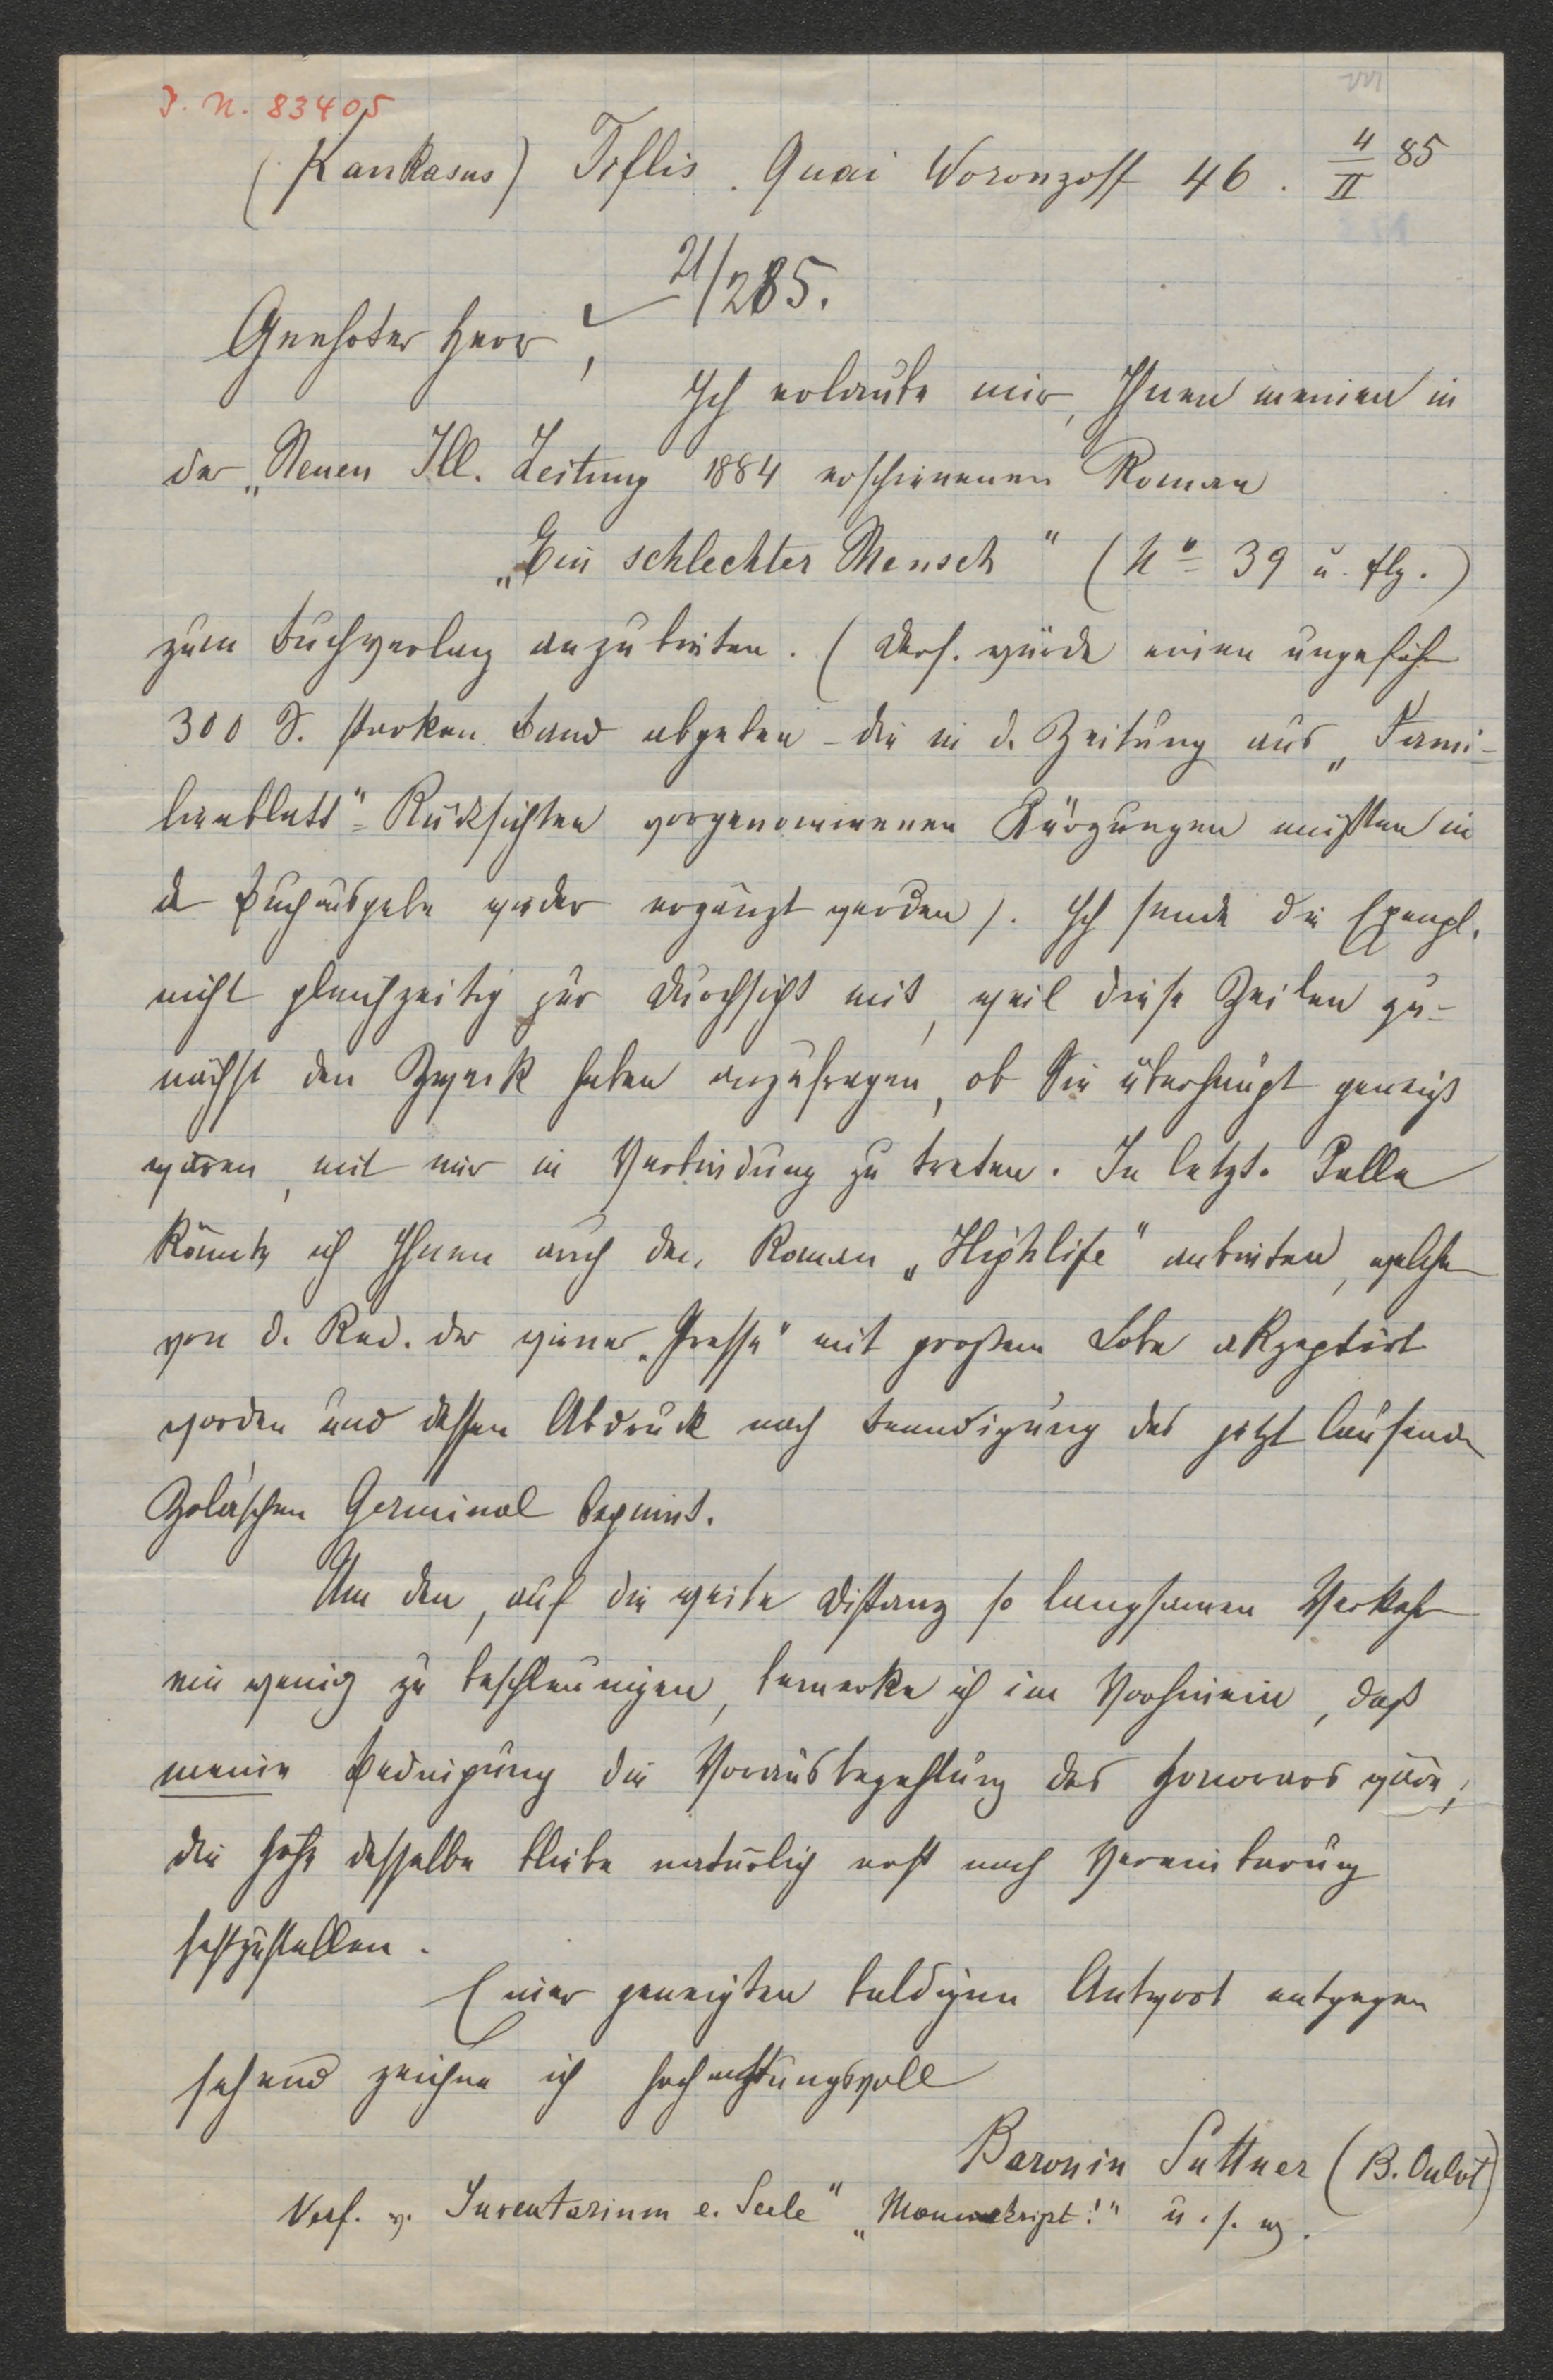 J. N. 83405
(Kaukasus) Tiflis. Quai Woronzoff 46. 4/II 85
21/285.
Geehrter Herr,
Ich erlaube mir, Ihnen meinen in
der „Neuen Ill. Zeitung 1884 erschienenen Roman
„Ein schlechter Mensch" (No 39 u. flg.)
zum Buchverlag anzubieten. (Ders. würde einen ungefähr
300 S. starken Band abgeben – die in d. Zeitung aus „Fami-
lienblatt"-Rücksichten vorgenommenen Kürzungen müßten in
der Buchausgabe wieder ergänzt werden). Ich sende die Exempl.
nicht gleichzeitig zur Durchsicht mit, weil diese Zeilen zu-
nächst den Zweck haben anzufragen, ob Sie überhaupt geneigt
wären, mit mir in Verbindung zu treten. In letzt. Falle
könnte ich Ihnen auch den Roman „Highlife" anbieten, welcher
von d. Red. der wiener „Presse" mit großem Lobe akzeptirt
worden und dessen Abdruck nach Beendigung des jetzt laufenden
Zola'schen Germinal beginnt.
Um den, auf die weite Distanz so langsamen Verkehr
ein wenig zu beschleunigen, bemerke ich im Vorhinein, daß
meine Bedingung die Vorausbezahlung des Honorars wäre;
die Höhe desselben bliebe natürlich erst nach Vereinbarung
festzustellen.
Einer geneigten baldigen Antwort entgegen
sehend zeichne ich hochachtungsvoll
Baronin Suttner (B. Oulot)
Verf. v. Inventarium e. Seele" „Manuskript!" u. s. w.